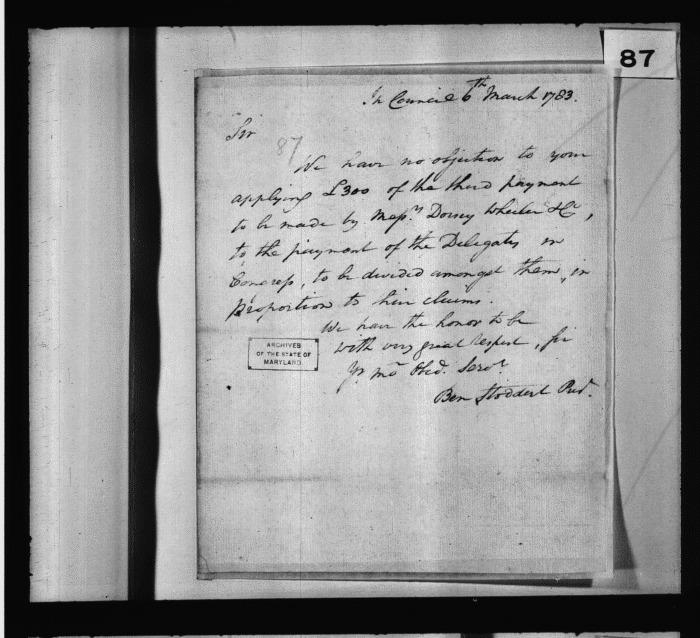 87
In Council 6th March 1783.
Sir
87
We have no objection to your
applying £300 of the third payment
to be made by Messrs Dorsey Wheeler & Co,
to the payment of the Delegates in
Congress, to be divided amongst them, in
proportion to their claims.
We have the honor to be
with very great respect, Sir
Yr mo Obed. Servt.
Ben Stoddert Prest.
ARCHIVES
OF THE STATE OF
MARYLAND